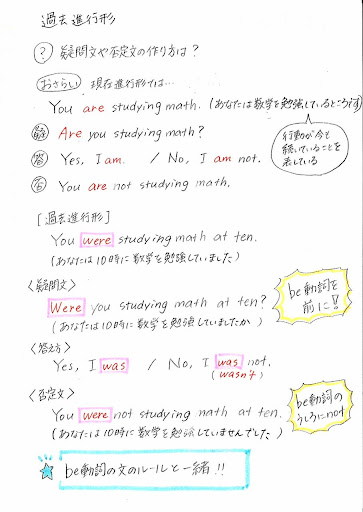 過去進行形
? 疑問文や否定文の作り方は?
おさらい 現在進行形では…
You are studying math. (あなたは数学を勉強しているところです)
疑 Are you studying math?
答 Yes, I am. / No, I am not.
否 You are not studying math.
行動が今も
続いていることを
表している
[過去進行形]
You were studying math at ten.
(あなたは10時に数学を勉強していました)
<疑問文>
Were you studying math at ten?
(あなたは10時に数学を勉強していましたか)
be動詞を
前に!!
<答え方>
Yes, I was / No, I was not.
(wasn't)
<否定文>
You were not studying math at ten.
(あなたは10時に数学を勉強していませんでした)
be動詞の
うしろにnot
be動詞の文のルールと一緒!!